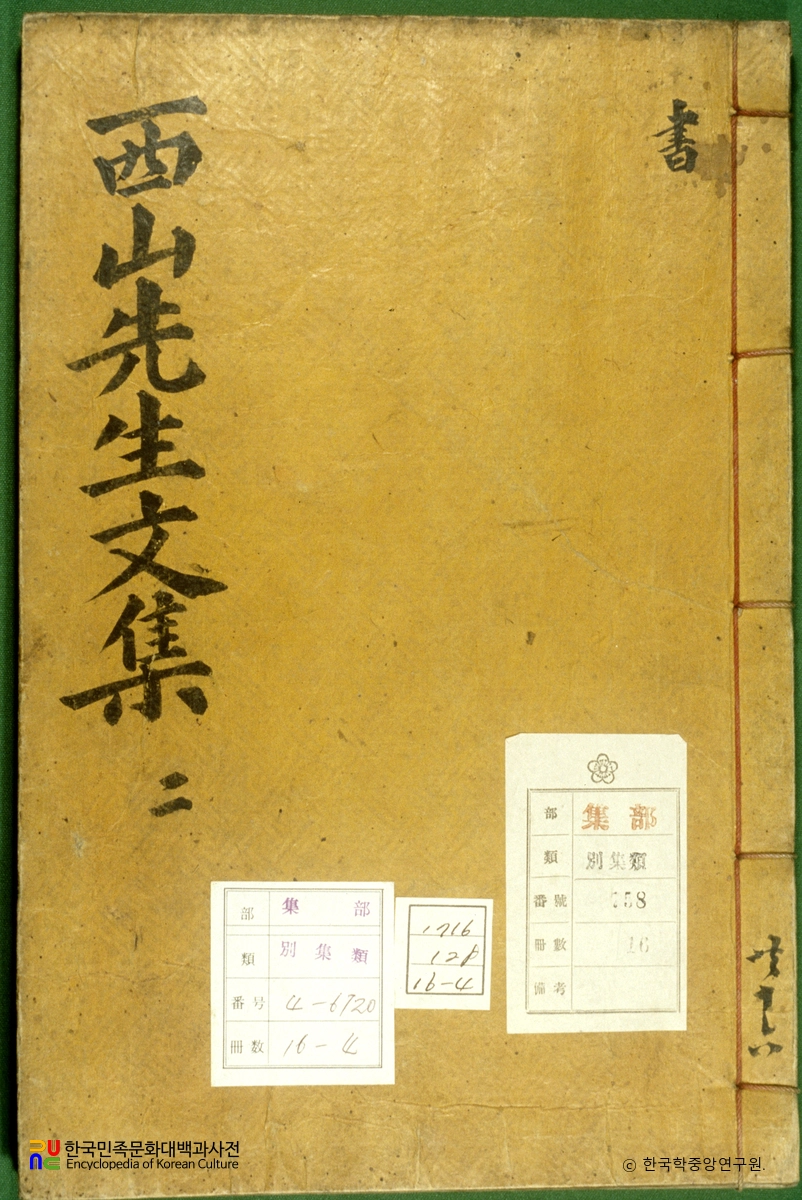 書
西山先生文集 二
共十六
部 集部
類 別集類
番號 158
冊數 16
備考
部 集部
類 別集類
番号 4-6720
冊数 16-4
1716
16-4
한국민족문화대백과사전
Encyclopedia of Korean Culture
ⓒ 한국학중앙연구원.